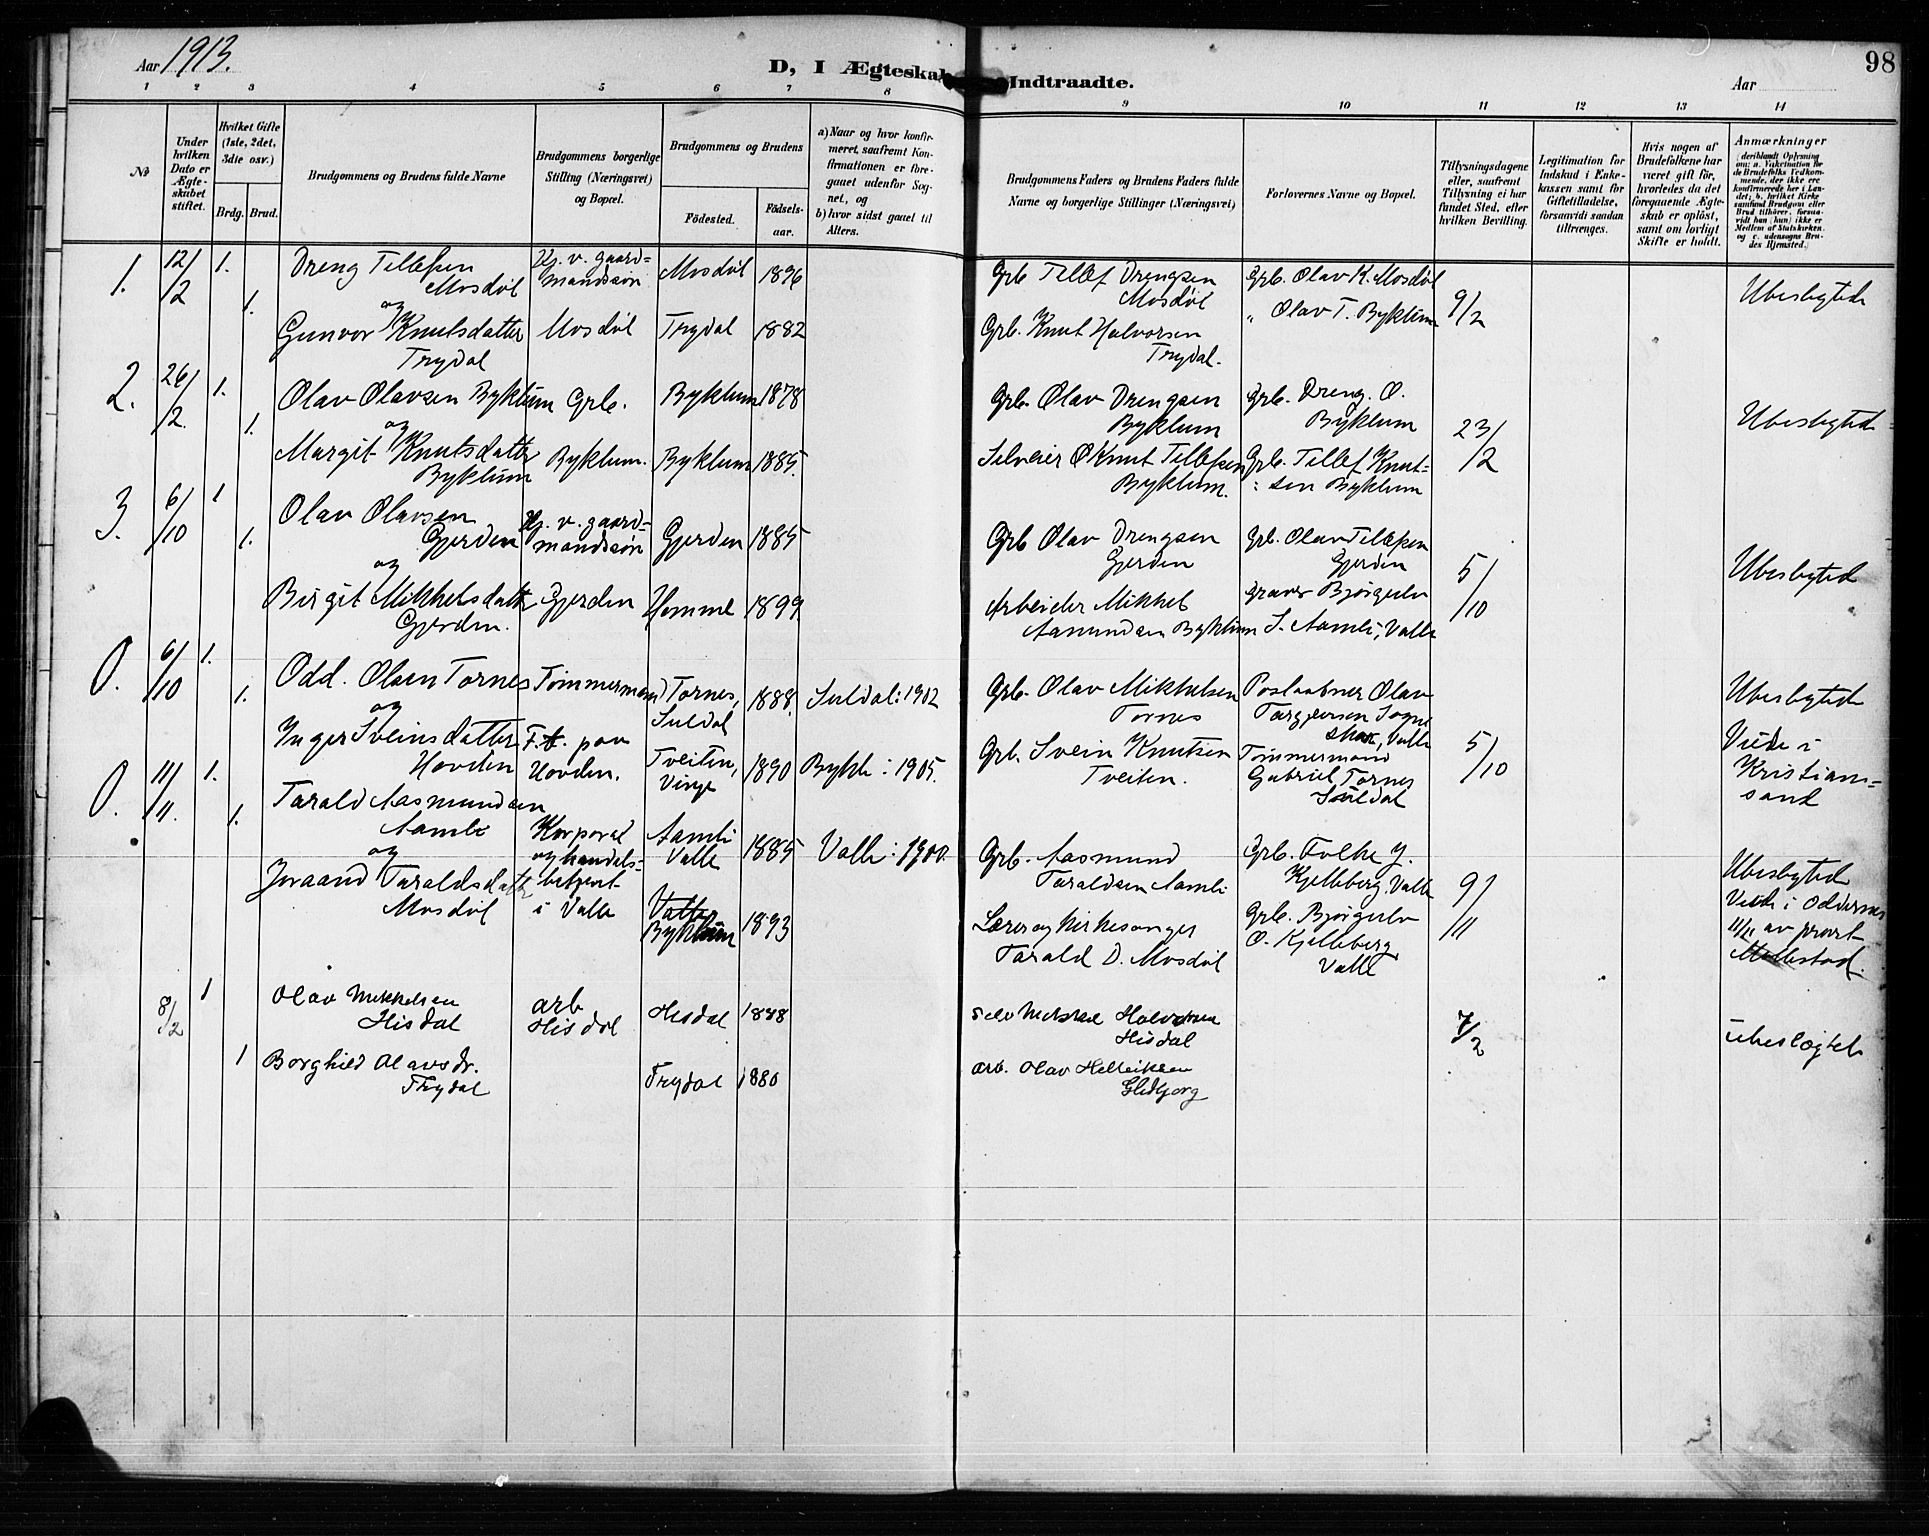 Aar 1913.
D, I Ægteskab Indtraadte.
Aar
98
1 2 3 4 5 6 7 8 9 10 11 12 13 14
No
Under hvilken Dato er Ægteskabet stiftet.
Hvilket Gifte (1ste, 2det, 3die osv.)
Brdg. Brud.
Brudgommens og Brudens fulde Navne
Brudgommens borgerlige Stilling (Næringsvei) og Bopæl.
Brudgommens og Brudens
Fødested.
Fødsels-aar.
a) Naar og hvor konfir-
meret, saafremt Kon-
firmationen er fore-
gaaet udenfor Sog-
net, og
b) hvor sidst gaaet til
Alters.
Brudgommens Faders og Brudens Faders fulde
Navne og borgerlige Stillinger (Næringsvei)
Forlovernes Navne og Bopæl.
Tillysningsdagene
eller, saafremt
Tillysning ei har
fundet Sted, efter
hvilken Bevilling.
Legitimation for
Indskud i Enke-
kassen samt for
Giftetilladelse,
forsaavidt saadan
tiltrænges.
Hvis nogen af
Brudefolkene har
været gift før,
hvorledes da det
foregaaende Ægte-
skab er opløst,
samt om lovligt
Skifte er holdt.
Anmærkninger
(deriblandt Oplysning
om: a. Vakcination for
de Brudefolks Vedkom-
mende, der ikke ere
konfirmerede her i Lan-
det; b. hvilket Kirke
samfund Brudgom eller
Brud tilhører, forsaa-
vidt han (hun) ikke er
Medlem af Statskirken,
og c. udensogns Bru-
des Hjemsted.
1. 12/2 1. Dreng Tellefsen Mosdøl Hj. v. gaard-mandssøn Mosdøl 1896 Grb Tellef Drengsen Mosdøl Grb. Olav K. Mosdøl 9/2 Ubeslegted
og
1. Gunvor Knutsdatter Trydal Mosdøl Trydal 1882 Grb. Knut Halvorsen Trydal. " Olav T. Byklum
2. 26/2. 1. Olav Olavsen Byklum Grb. Byklum 1878 Grb. Olav Drengsen Byklum Grb. Dreng. O. Byklum 23/2 Ubeslegted
og
1. Margit Knutsdatter Byklum Byklum. Byklum 1885. Selveier Ø Knut Tellefsen Byklum. Grb. Tellef Knut-sen Byklum
3. 6/10 1 Olav Olavsen Gjerden Hj. v. gaard-mandssøn Gjerden 1885 Grb Olav Drengsen Gjerden Grb. Olav Tellefsen Gjerden 5/10 Ubeslegted
og
1. Birgit Mikkelsdatter Gjerden. Gjerden Homme 1899 Arbeider Mikkel Aamundsen Byklum graver Bjørgulv S. Aamli, Valle
0. 6/10 1. Odd. Olsen Tornes Tømmermand Tornes, Suldal 1888. Suldal: 1902 Grb. Olav Mikkelsen Tornes Postaabner Olav Targjersen Sogne skar, Valle 5/10 Ubeslegted
og
1. Inger Sveinsdatter Hovden F. t. paa Hovden. Tveiten, Vinje 1890 Bykle: 1905. Grb. Svein Knutsen Tveiten. Tømmermand Gabriel Tornes Suldal Viede i Kristians-sand
0. 11/11. 1. Tarald Aasmundsen Aamli Korporal og handels-betjent i Valle Aamli Valle 1885 Valle: 1900. Grb. Aasmund Taraldsen Aamli Grb. Folke Y. Kjelleberg, Valle 9/11 Ubeslegted
og
1. Joraand Taraldsdatter Mosdøl Valle Byklum 1893 Lærer og kirkesanger Tarald D. Mosdøl Grb. Bjørgulv O. Kjelleberg Valle Viede i Oddernes 11/11 av prost
8/2 1 Olav Mikkelsen Hisdal arb Hisdal Hisdal 1888 Selv Mikkel Halvorsen Hisdal 7/2 Ubeslegtet
1 Borghild Olavsdr. Trydal Trydal 1880 arb. Olav Helleiksen Glidbjorg